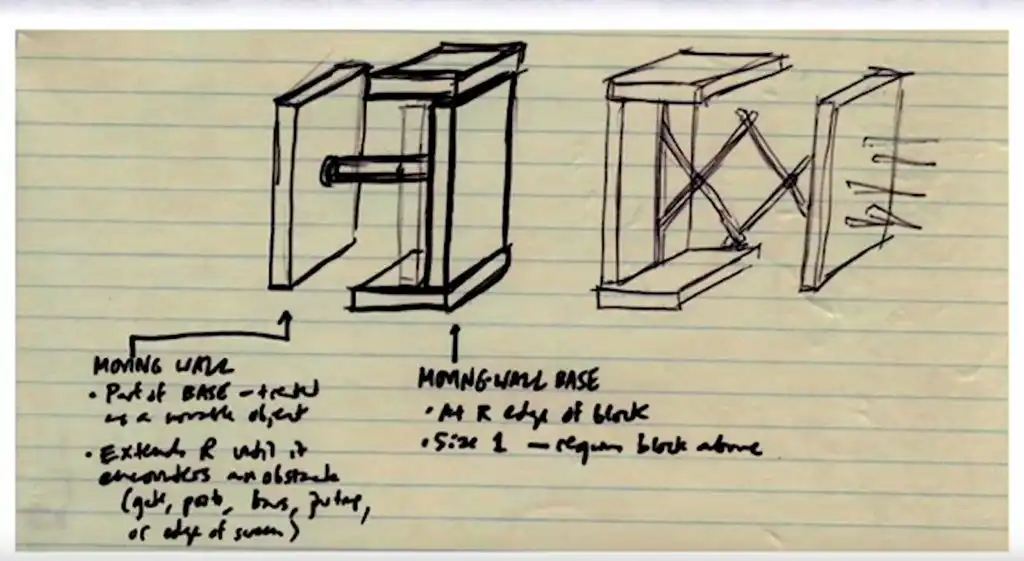 MOVING WALL
• Part of BASE – treated
as a movable object
• Extends R until it
encounters an obstacle
(gate, posts, bars,
or edge of screen)
MOVING-WALL BASE
• At R edge of block
• Size 1 – requires block above